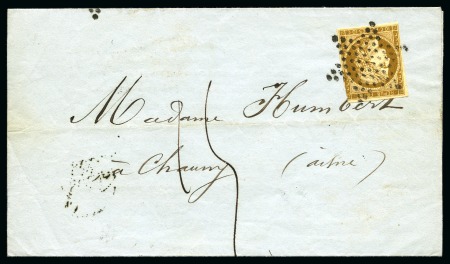 Madame Humbert
à Chauny (aisne)